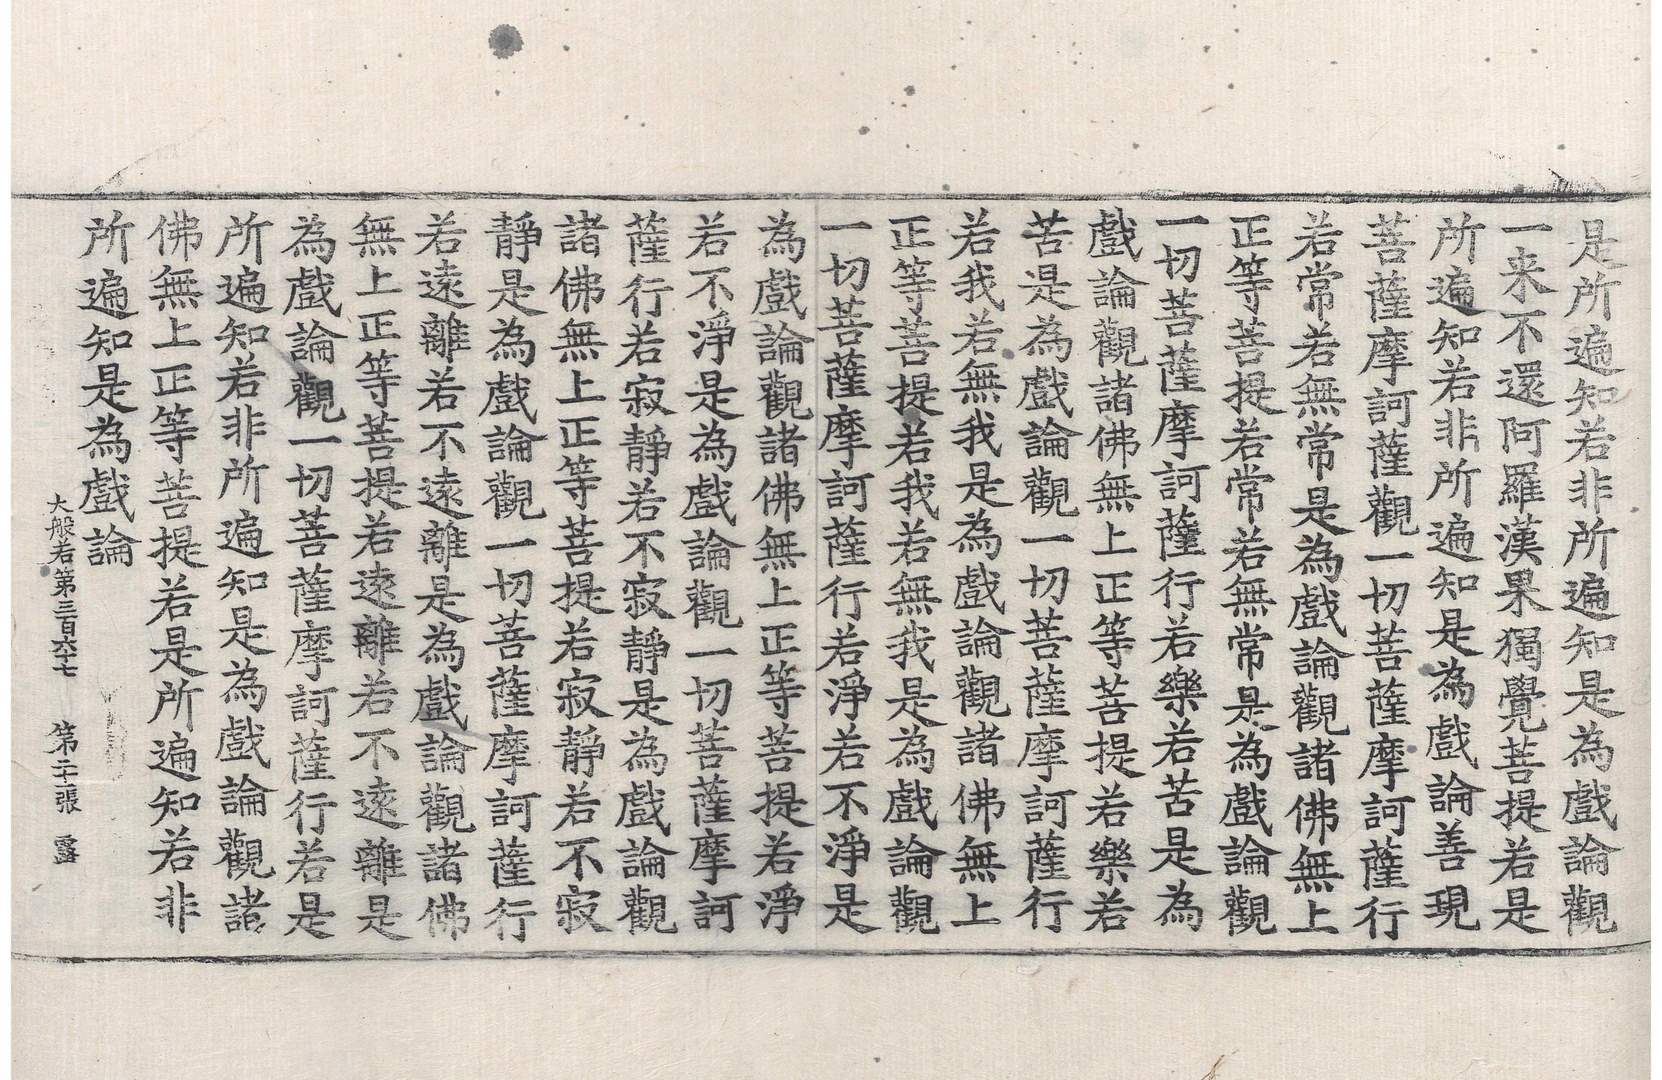 是所遍知若非所遍知是為戲論觀
一来不還阿羅漢果獨覺菩提若是
所遍知若非所遍知是為戲論善現
菩薩摩訶薩觀一切菩薩摩訶薩行
若常若無常是為戲論觀諸佛無上
正等菩提若常若無常是為戲論觀
一切菩薩摩訶薩行若樂若苦是為
戲論觀諸佛無上正等菩提若樂若
苦是為戲論觀一切菩薩摩訶薩行
若我若無我是為戲論觀諸佛無上
正等菩提若我若無我是為戲論觀
一切菩薩摩訶薩行若淨若不淨是
為戲論觀諸佛無上正等菩提若淨
若不淨是為戲論觀一切菩薩摩訶
薩行若寂靜若不寂靜是為戲論觀
諸佛無上正等菩提若寂靜若不寂
靜是為戲論觀一切菩薩摩訶薩行
若遠離若不遠離是為戲論觀諸佛
無上正等菩提若遠離若不遠離是
為戲論觀一切菩薩摩訶薩行若是
所遍知若非所遍知是為戲論觀諸
佛無上正等菩提若是所遍知若非
所遍知是為戲論
大般若第三百六十七 第二十張 露